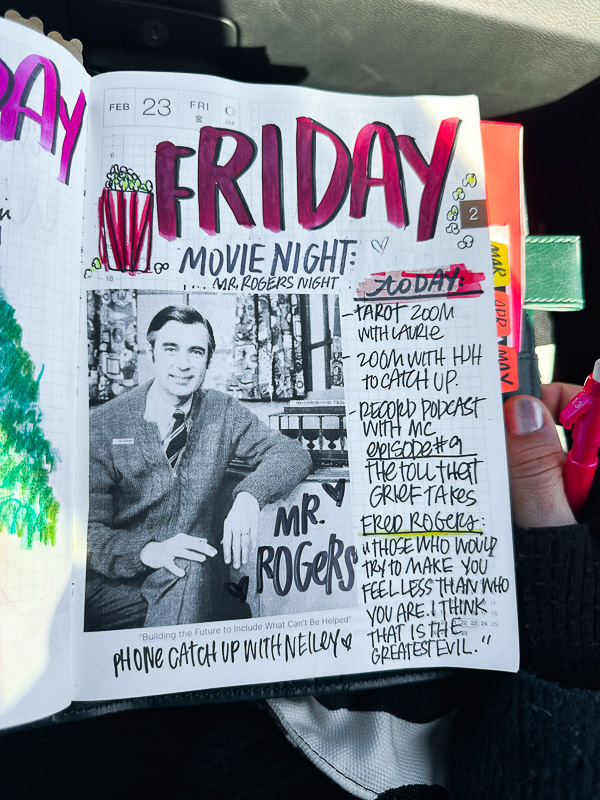 DAY
FEB 23 FRI
金
FRIDAY
2
6
MOVIE NIGHT:
.... MR. ROGERS NIGHT.
18
TODAY:
- TAROT ZOOM
WITH LAURIE
- ZOOM WITH HJH
TO CATCH UP.
- RECORD PODCAST
WITH MC
EPISODE #9
THE TOLL THAT
GRIEF TAKES
FRED ROGERS:
"THOSE WHO WOULD
TRY TO MAKE YOU
FEEL LESS THAN WHO
YOU ARE. I THINK
THAT IS THE
GREATEST EVIL."
MR.
ROGERS
"Building the Future to Include What Can't Be Helped"
PHONE CATCH UP WITH NELLEY
MAR
APR
MAY